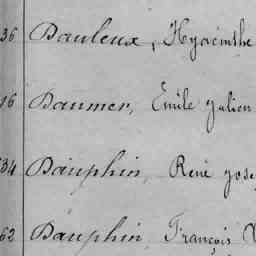 36 Dauleux, Hyacinthe
16 Daumer, Emile Julien
34 Dauphin, René Jose
62 Dauphin, François